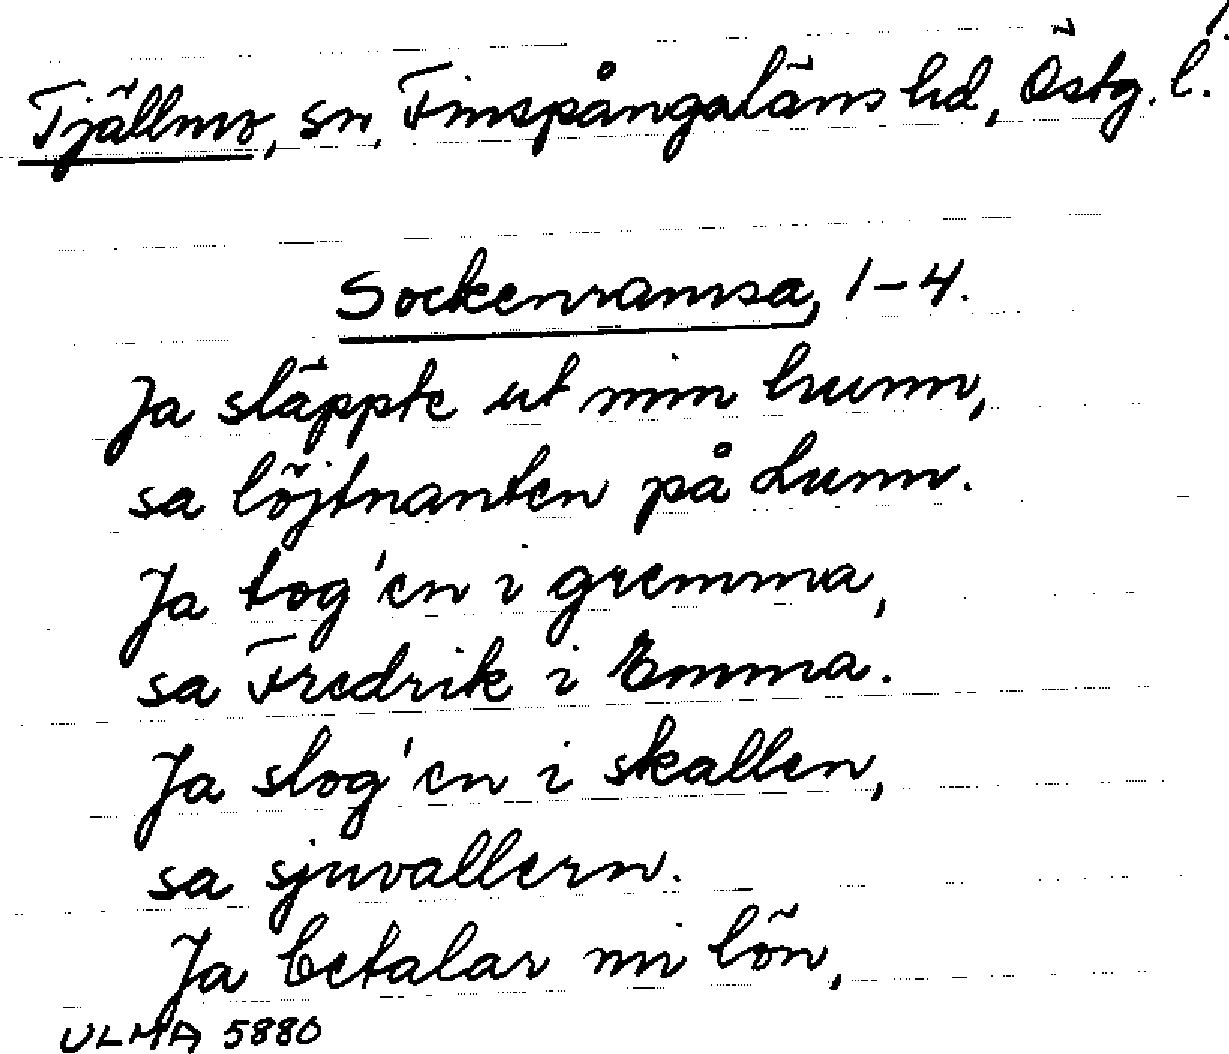 1.
Tjällmo, sn, Finspångaläns hd, Östg. l.
Sockenramsa, 1-4.
Ja släppte ut min hunn,
sa löjtnanten på Lunn.
Ja tog'en i gremma,
sa Fredrik i Emma.
Ja slog'en i skallen,
sa sjuvallern.
Ja betalar mi lön,
ULMA 5880